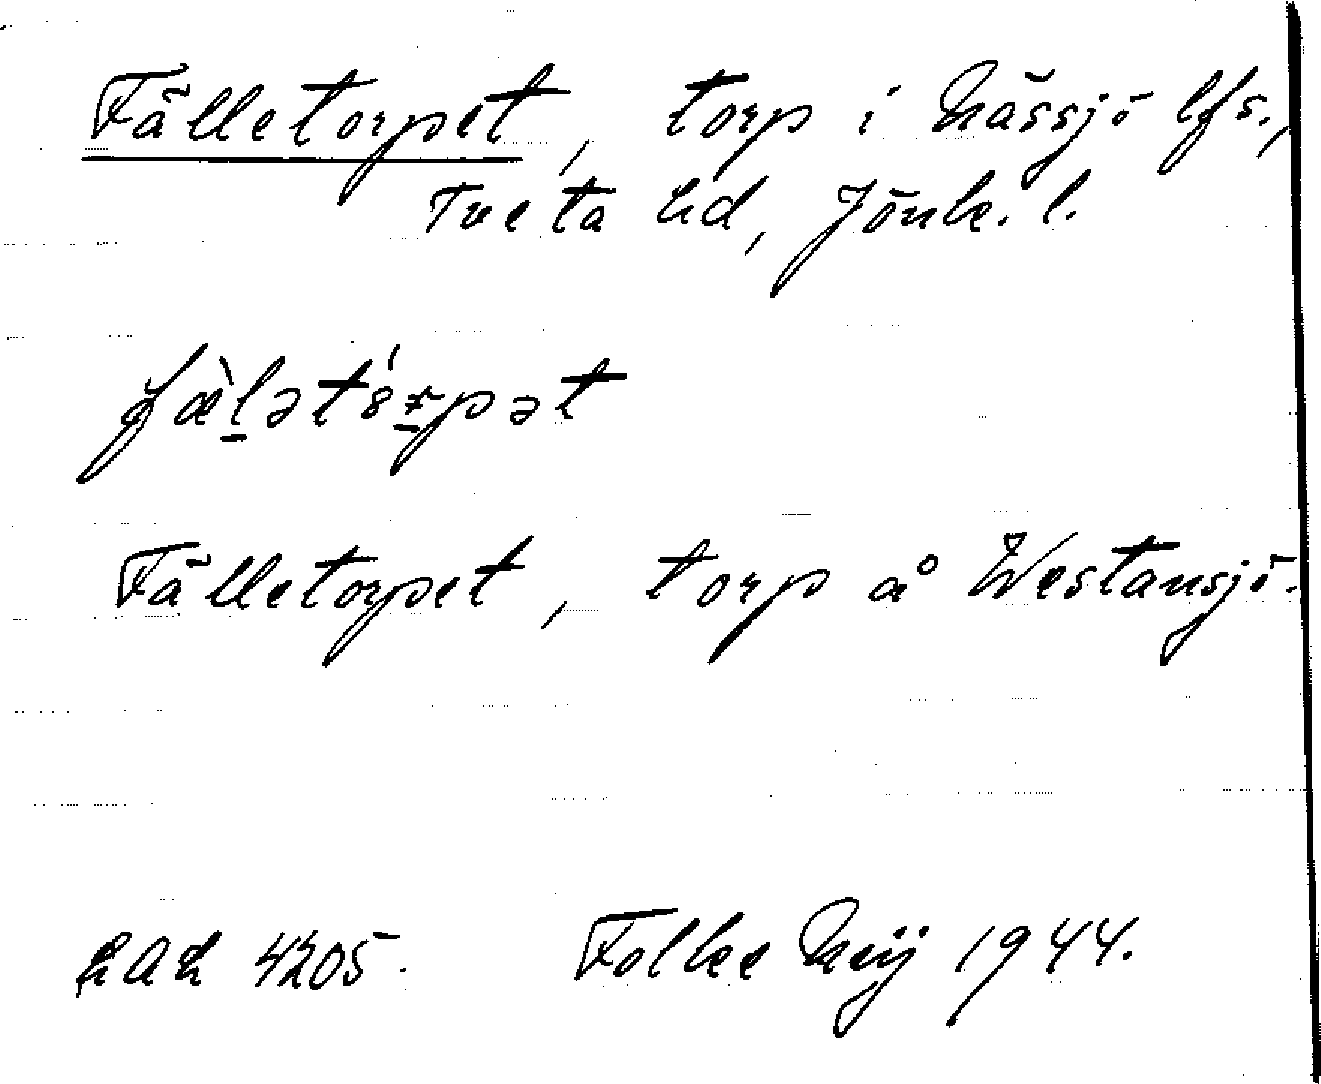 Fälletorpet, torp i Nässjö lfs.,
Tveta hd, Jönk. l.
fæ̀lət8́rpət
Fälletorpet, torp å Westansjö.
4205. Folke Neij 1944.